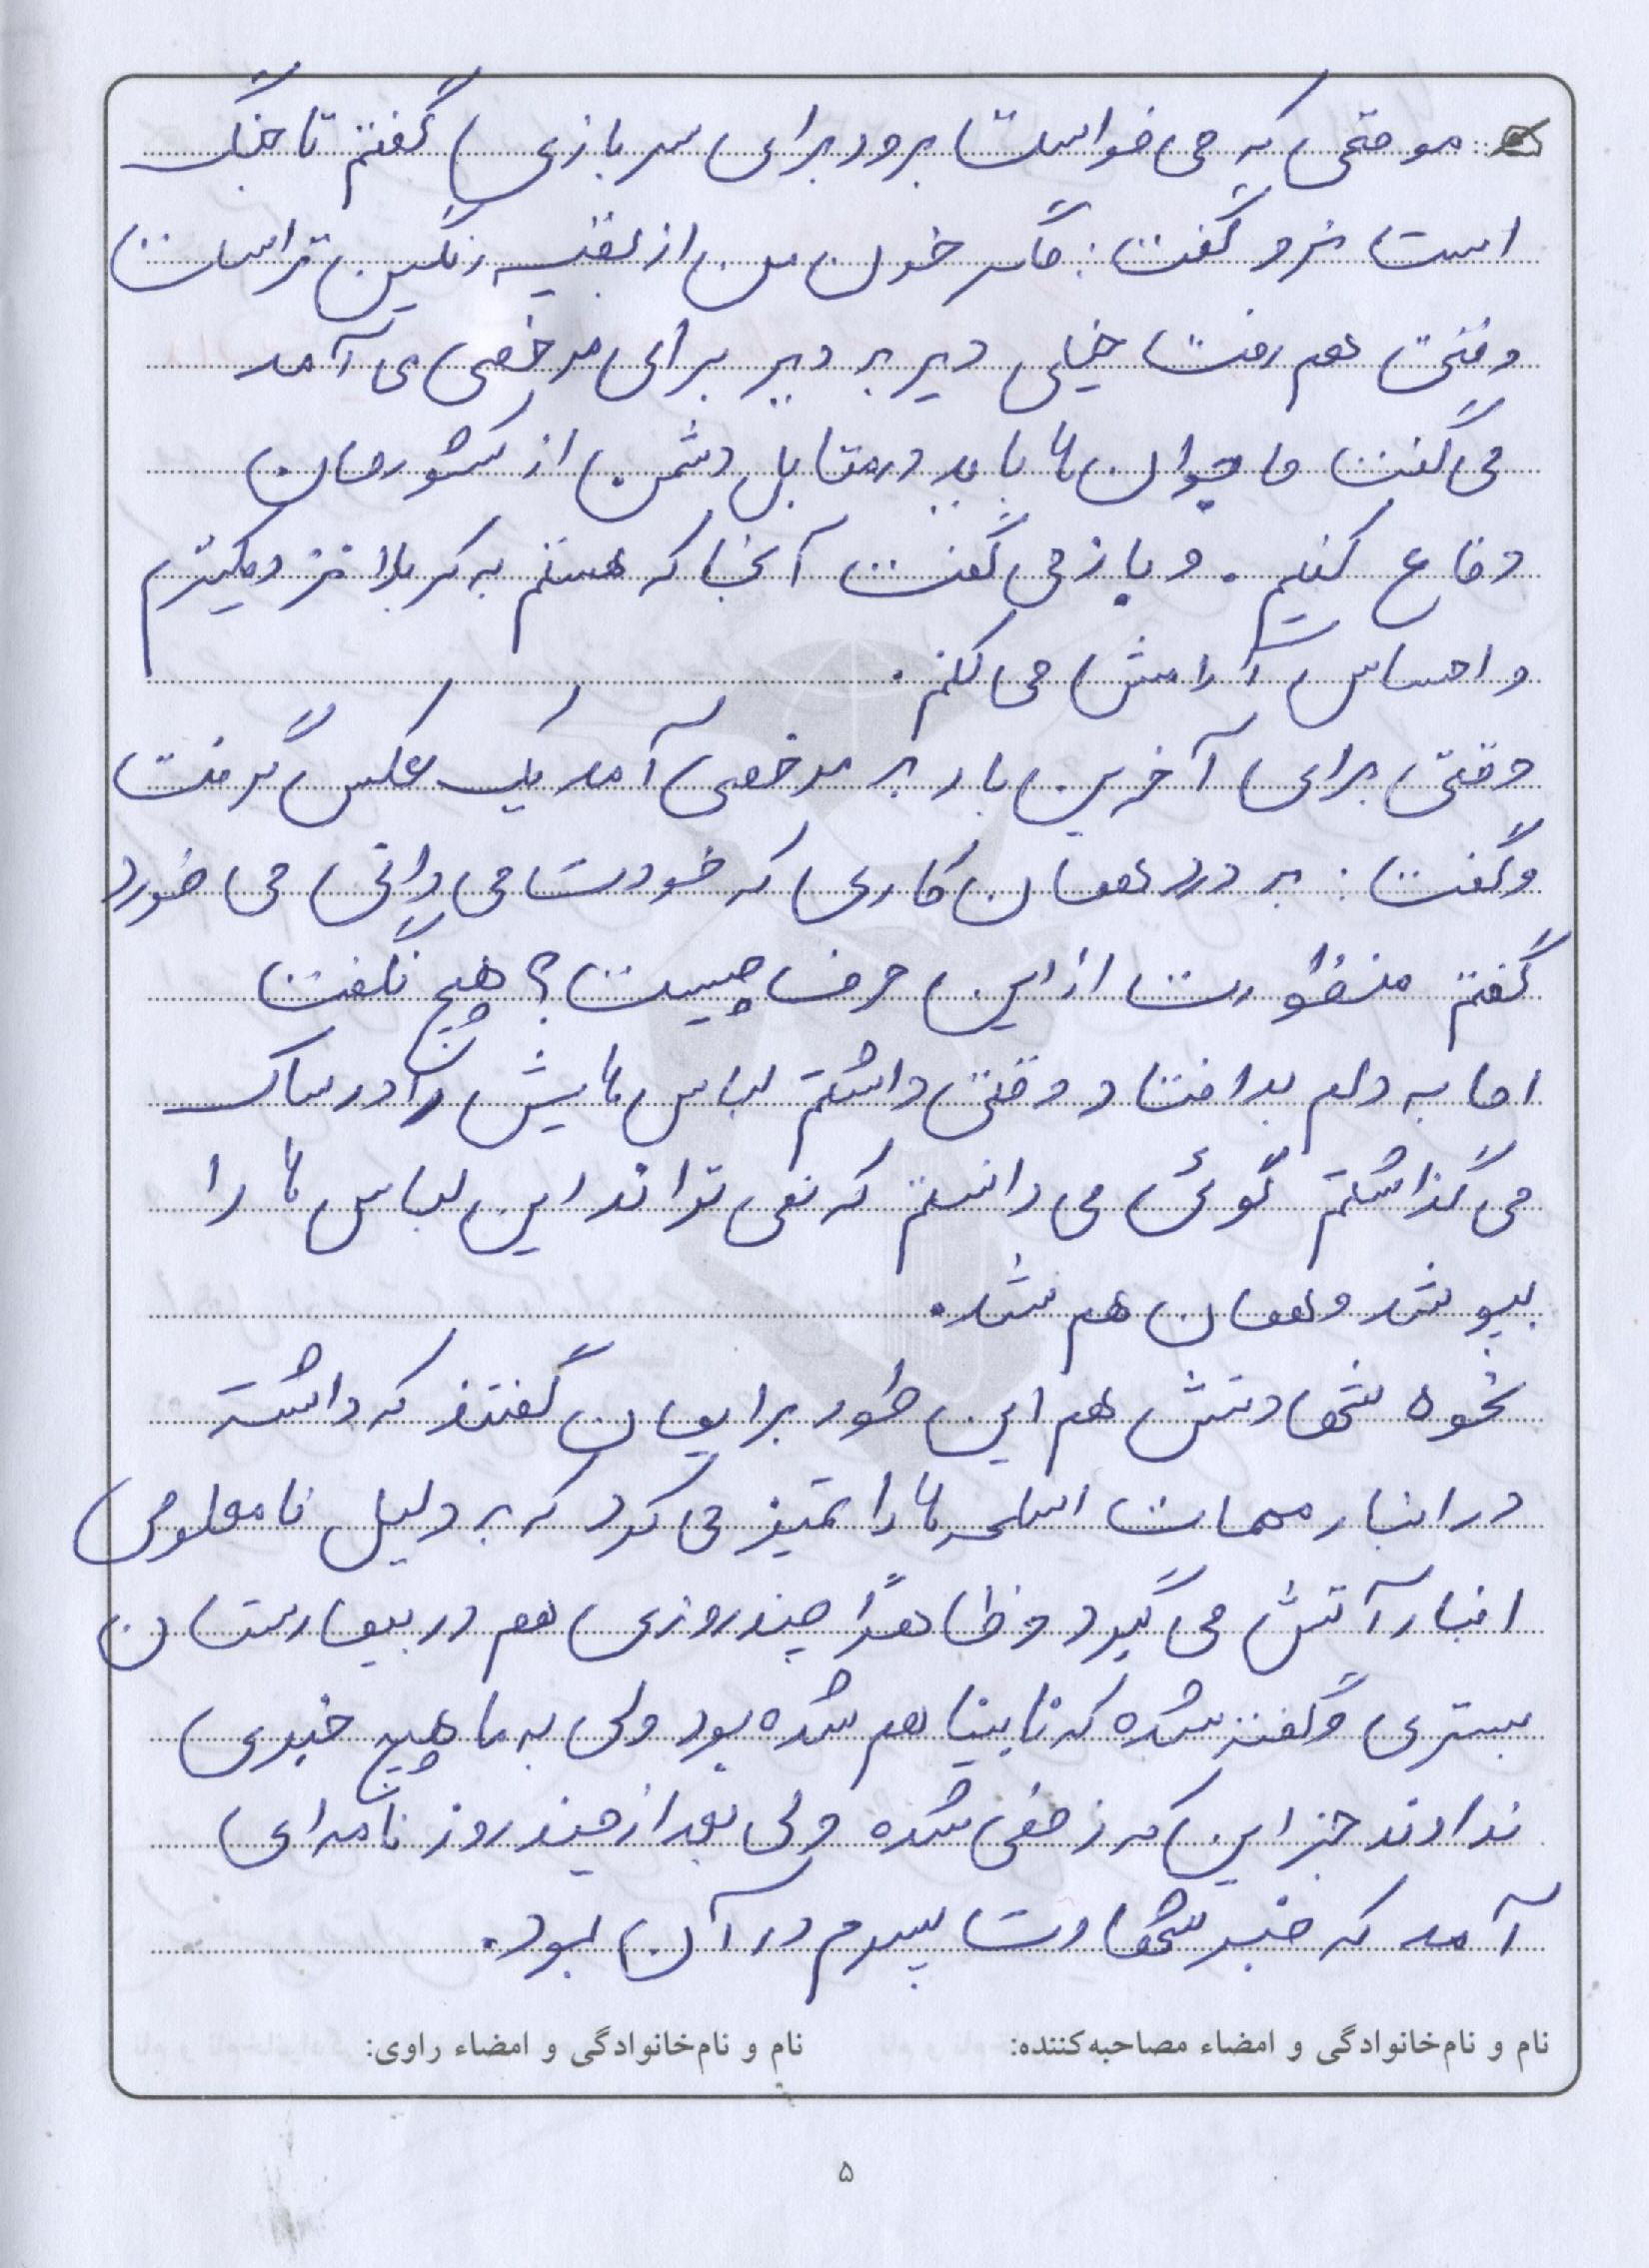 موقعی که می خواست برود برای سربازی گفتم تا جنگ
است نرو گفت: مگر خون من از بقیه رنگین تر است
وقتی هم رفت خیلی دیر به دیر برای مرخصی می آمد
می گفت ما جوان ها باید در مقابل دشمن از کشورمان
دفاع کنیم. و باز می گفت آنجا که هستم به کربلا نزدیکترم
و احساس آرامش می کنم.
وقتی برای آخرین بار به مرخصی آمد یک عکس گرفت
و گفت: به درد همان کاری که خودت می دانی می خورد
گفتم منظورت از این حرف چیست؟ هیچ نگفت
اما به دلم بد افتاد وقتی داشتم لباس هایش را در ساک
می گذاشتم گوئی می دانستم که نمی تواند این لباس ها را
بپوشد و همان هم شد.
نحوه شهادتش هم این طور برایمان گفتند که داشته
در انبار مهمات اسلحه ها را تمیز می کرد که به دلیل نامعلومی
انبار آتش می گیرد و ظاهراً چند روزی هم در بیمارستان
بستری و گفته شده که نابینا هم شده بود ولی به ما هیچ خبری
ندادند جز این که زخمی شده ولی بعد از چند روز نامه ای
آمد که خبر شهادت پسرم در آن بود.
نام و نام‌خانوادگی و امضاء مصاحبه‌کننده: نام و نام‌خانوادگی و امضاء راوی:
۵